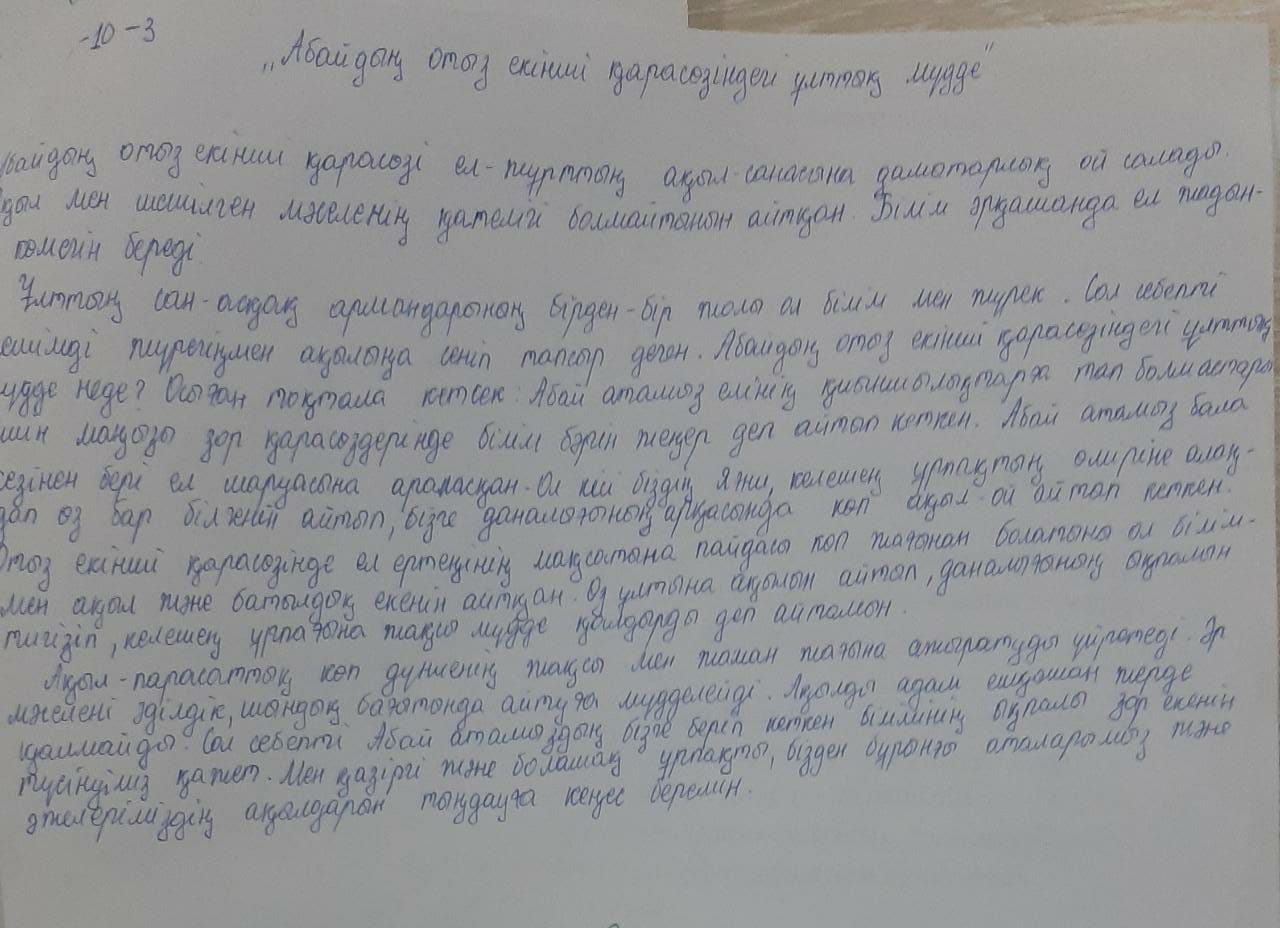 -10-3
„Абайдың отыз екінші қарасөзіндегі ұлттық мүдде"
байдың отыз екінші қарасөзі ел-жұрттың ақыл-санасына даматарлық ой салады.
қыл мен шешілген мәселенің қателігі болмайтынын айтқан. Білім әрқашанда ел жағдын-
көмегін береді.
Ұлттың сан-асқақ армандарының бірден-бір жолы ол білім мен жүрек. Сол себепті
шешімді жүрегіңмен ақылыңа сеніп тапсыр деген. Абайдың отыз екінші қарасөзіндегі ұлттық
үдде неде? Осыған тоқтала кетсек: Абай атамыз елінің қиыншылықтарға тап болмастары
шін маңызы зор қарасөздерінде білім бәрін жеңер деп айтып кеткен. Абай атамыз бала
кезінен бері ел шаруасына араласқан. Ол кісі біздің яғни, келешең ұрпақтың өміріне алаң-
дап өз бар білгенін айтып, бізге даналығының арқасында көп ақыл-ой айтып кеткен.
Отыз екінші қарасөзінде ел ертеңінің мақсатына пайдасы көп жағынан болатыны ол білім-
мен ақыл және батылдық екенін айтқан. Өз ұлтына ақылын айтып, даналығының ықпалын
тигізіп, келешең ұрпағына жақсы мүдде қалдырды деп айтамын.
Ақыл-парасаттық көп дүниенің жақсы мен жаман жағына ажыратуды үйретеді. Әр
мәселені әділдік, шындық бағытында айтуға мүдделейді. Ақылды адам ешқашан жерде
қалмайды. Сол себепті Абай атамыздың бізге беріп кеткен білімінің ықпалы зор екенін
түсінуіміз қажет. Мен қазіргі және болашақ ұрпақты, бізден бұрынғы аталарымыз және
әжелеріміздің ақылдарын тыңдауға кеңес беремін.